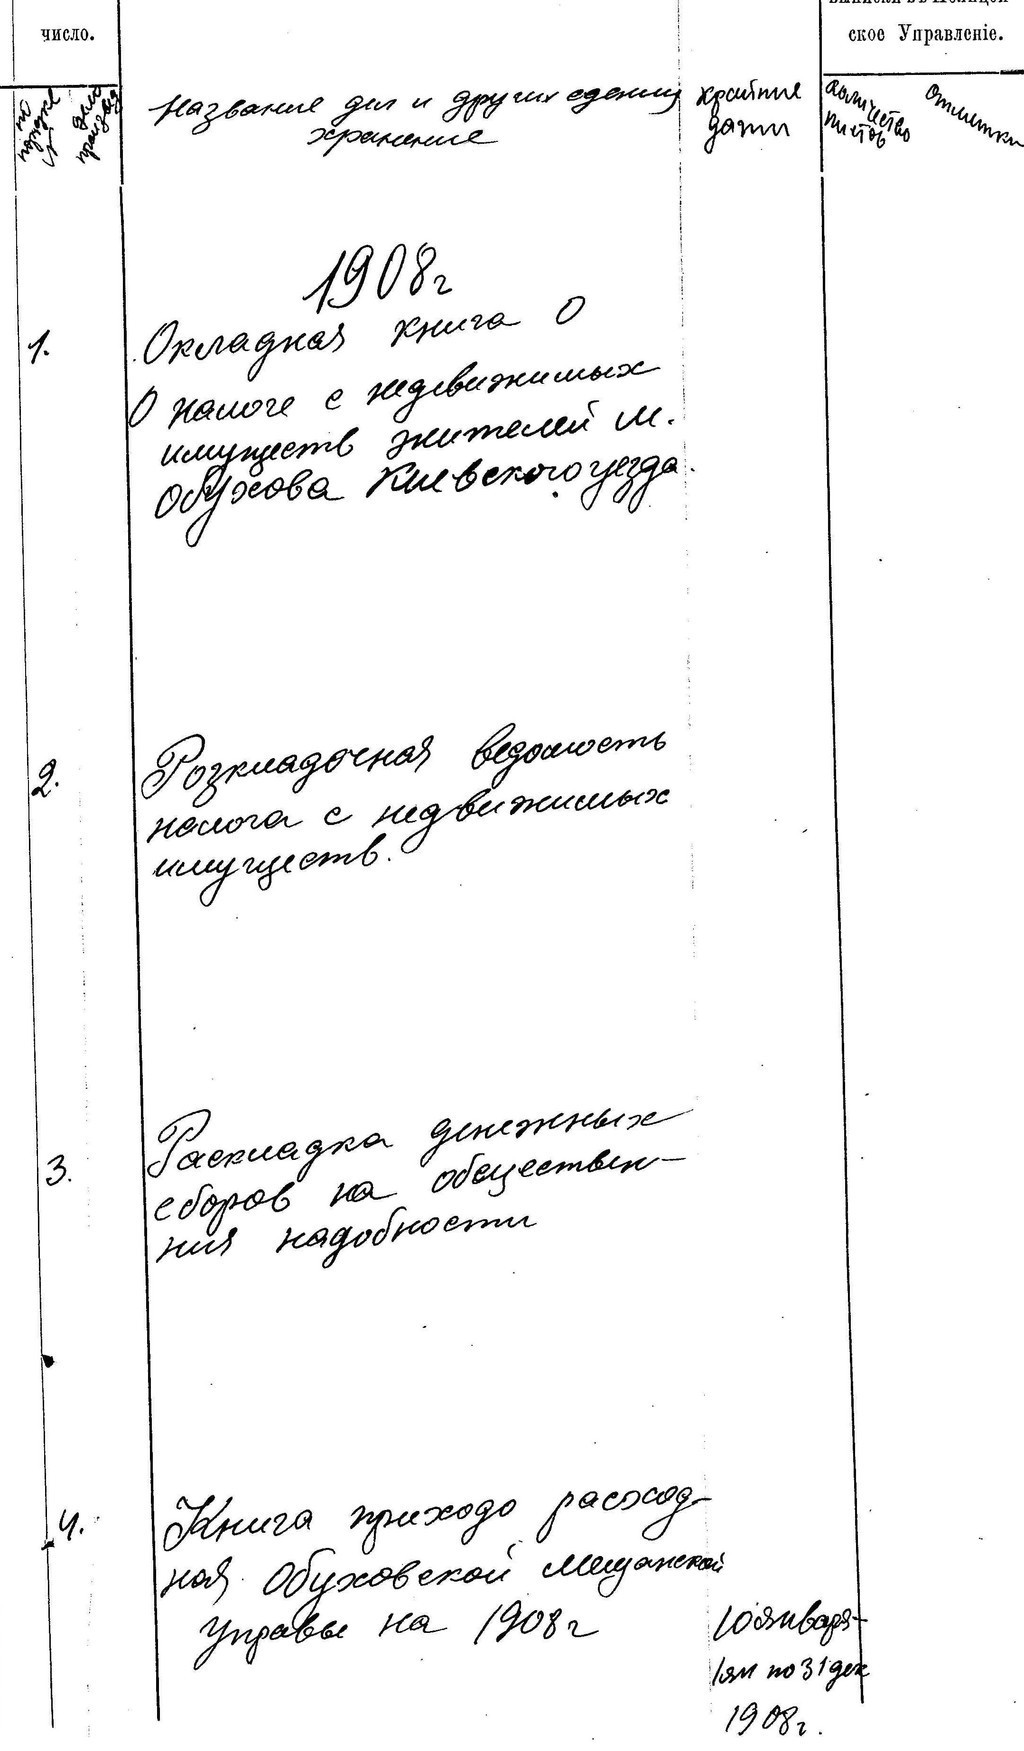 выписки въ Полицей
число.
ское Управленіе.
по
порядке
дело
произвед
Название дел и других едениц
хранение
крайние
даты
количество
листов
Отметки
1908г
1.
Окладная книга О
О налоге с недвижимых
имуществ жителей м.
Обухова Киевского уезда.
2.
Розкладочная ведомость
налога с недвижимых
имуществ.
3.
Раскладка денежных
сборов на обществен-
ния надобности
4.
Книга приходо расход-
ная Обуховской мещанской
управы на 1908г
10 января-
1ян по 31 дек
1908г.